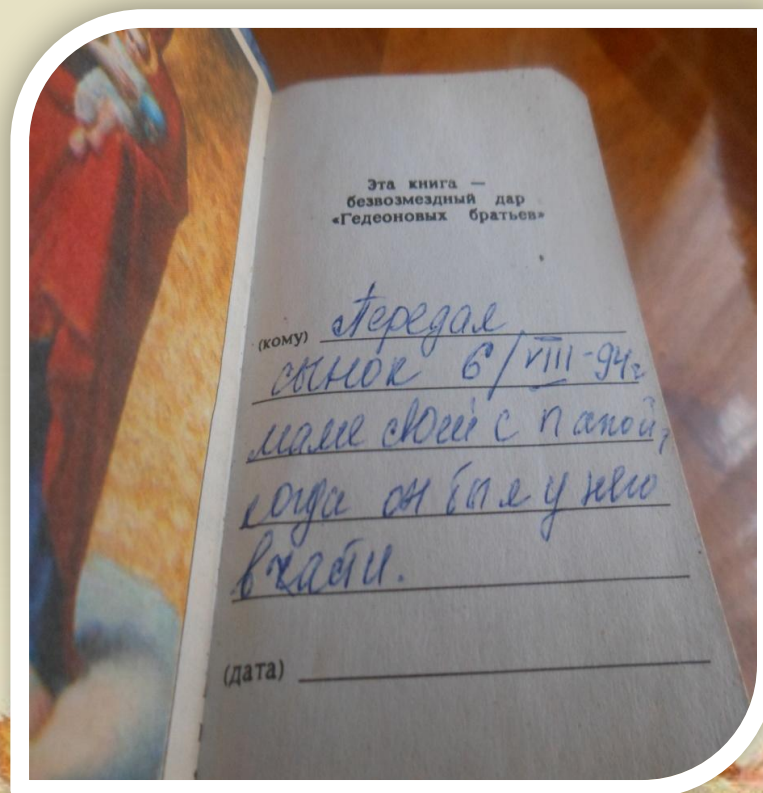 Эта книга —
безвозмездный дар
«Гедеоновых братьев»
(кому) Передал
сынок 6/VIII-94г
маме своей с папой,
когда он был у него
в части.
(дата)